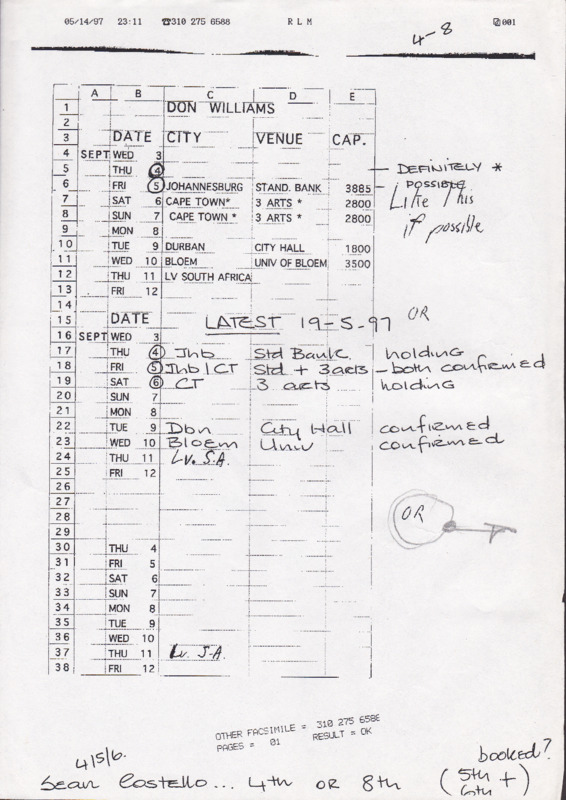 05/14/97 23:11 ☎310 275 6588 R L M 001
4-8
A B C D E
1 DON WILLIAMS
2
3 DATE CITY VENUE CAP.
4 SEPT WED 3
5 THU 4 — DEFINITELY *
6 FRI 5 JOHANNESBURG STAND. BANK 3885 — POSSIBLE
7 SAT 6 CAPE TOWN* 3 ARTS * 2800 Like this
8 SUN 7 CAPE TOWN * 3 ARTS * 2800 if possible
9 MON 8
10 TUE 9 DURBAN CITY HALL 1800
11 WED 10 BLOEM UNIV OF BLOEM 3500
12 THU 11 LV SOUTH AFRICA
13 FRI 12
14
15 DATE LATEST 19-5-97 OR
16 SEPT WED 3
17 THU 4 Jhb Std Bank holding
18 FRI 5 Jhb/CT Std + 3arts - both confirmed
19 SAT 6 CT 3 arts holding
20 SUN 7
21 MON 8
22 TUE 9 Dbn City Hall confirmed
23 WED 10 Bloem Univ confirmed
24 THU 11 Lv. S.A.
25 FRI 12
26
27
28 OR
29
30 THU 4
31 FRI 5
32 SAT 6
33 SUN 7
34 MON 8
35 TUE 9
36 WED 10
37 THU 11 Lv. S.A.
38 FRI 12
OTHER FACSIMILE = 310 275 6588
PAGES = 01 RESULT = OK
4/5/6. booked?
Sean Costello... 4th OR 8th (5th +
6th)